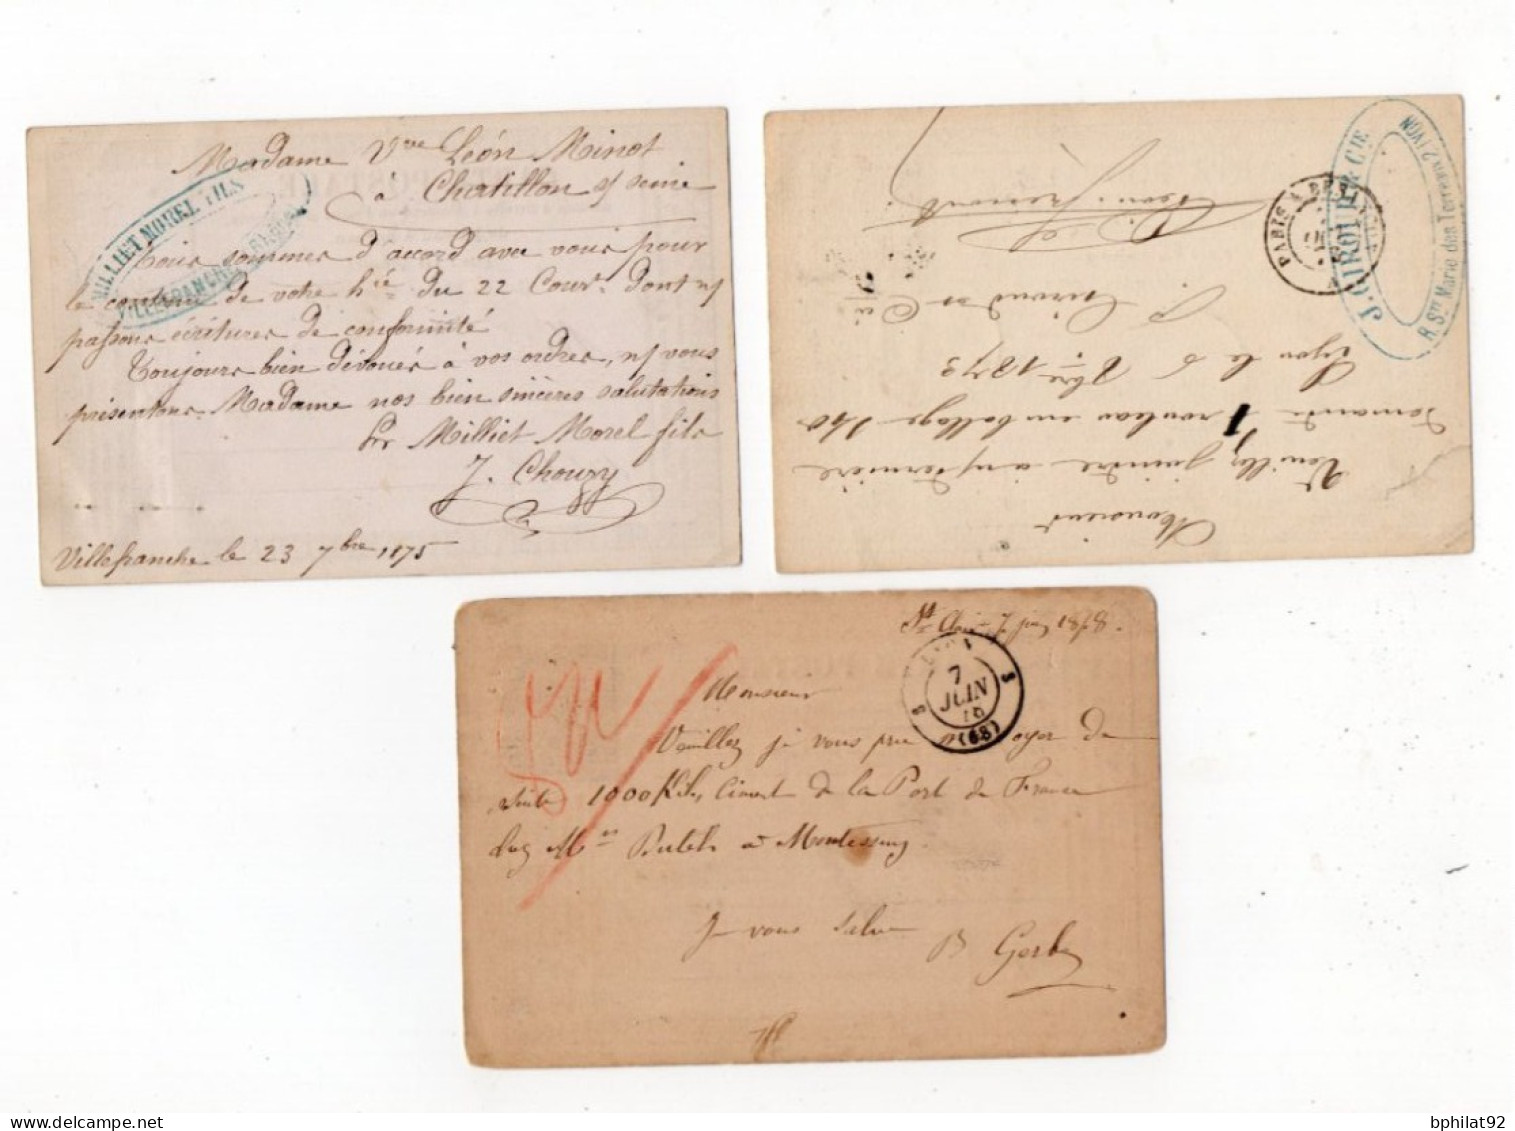 Madame Vve Léon Minot
à Chatillon s/ seine
MILLIET MOREL FILS
VILLEFRANCHE
Nous sommes d'accord avec vous pour
le contenu de votre h'ée du 22 Cour. Dont n/
passons écritures de conformité
Toujours bien dévoués à vos ordres, n/ vous
présentons Madame nos bien sincères salutations
Pr Milliet Morel fils
J. Chouzy
Villefranche le 23 7bre 1875
Monsieur
Veuillez joindre à ma dernière
demande 1 rouleau emballage 140
Lyon le 6 8bre 1873
J. Giroud & Cie
J. GIROUD & CIE
R. Ste Marie des Terreaux 2 LYON
PARIS A BESANCON
7 juin 1878.
7
JUIN
78
(68)
Monsieur
Veuillez je vous prie envoyer de
suite 1000 Kilos Ciment de la Port de France
chez Mr à Montessuy.
Je vous salue
B
bphilat92